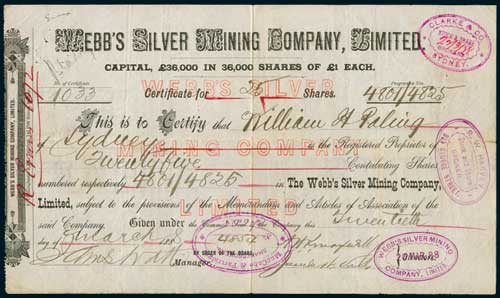 WEBB'S SILVER MINING COMPANY, LIMITED.
CAPITAL, £36,000 IN 36,000 SHARES OF £1 EACH.
No. of Certificate
1033
Certificate for 25 Shares.
Progressive Nos.
4801/4825
WEBB'S SILVER
This is to Certify that William H Paling
of Sydney is the Registered Proprietor of
Twentyfive Contributing Shares
MINING COMPANY
numbered respectively 4801/4825 in The Webb's Silver Mining Company,
Limited, subject to the provisions of the Memorandum and Articles of Association of the
LIMITED
said Company. Given under the Common Seal of the Company this Twentieth
day of March 188
BY ORDER OF THE BOARD.
Manager.
Directors.
WEBB'S SILVER MINING COMPANY, LIMITED.
CLARKE & CO
STOCK & SHARE
SYDNEY.
4852
WEBB'S SILVER MINING
COMPANY, Limited